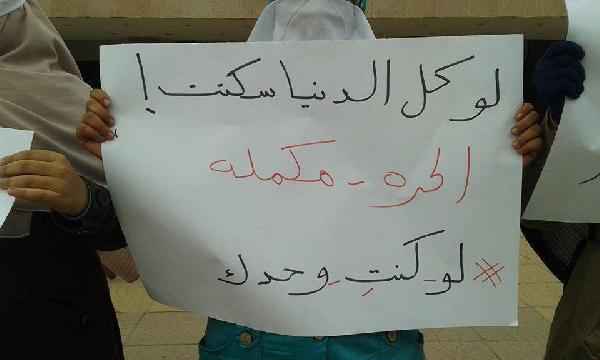 لو كل الدنيا سكتت!
الحره - مكمله
#لو_كنتِ_وحدك